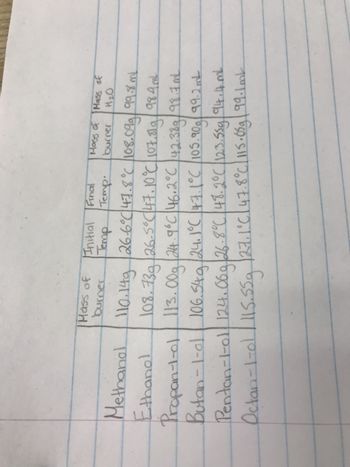 Mass of burner | Initial Temp | Final Temp. | Mass of burner | Mass of H₂O
Methanol | 110.14g | 26.6°C | 47.8°C | 108.09g | 99.8ml
Ethanol | 108.73g | 26.5°C | 47.10°C | 107.81g | 98.9ml
Propan-1-ol | 113.00g | 24.9°C | 46.2°C | 42.38g | 98.7ml
Butan-1-ol | 106.54g | 24.1°C | 47.1°C | 105.90g | 99.2ml
Pentan-1-ol | 124.06g | 26.8°C | 48.2°C | 123.55g | 94.4ml
Octan-1-ol | 115.55g | 27.1°C | 47.8°C | 115.03g | 99.1ml